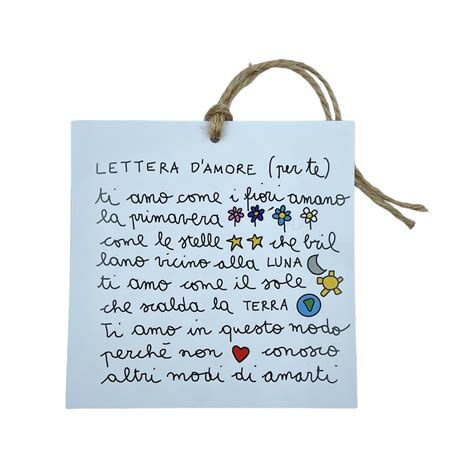 LETTERA D'AMORE (per te)
ti amo come i fiori amano
la primavera
come le stelle che bril
lano vicino alla LUNA
ti amo come il sole
che scalda la TERRA
Ti amo in questo modo
perché non conosco
altri modi di amarti